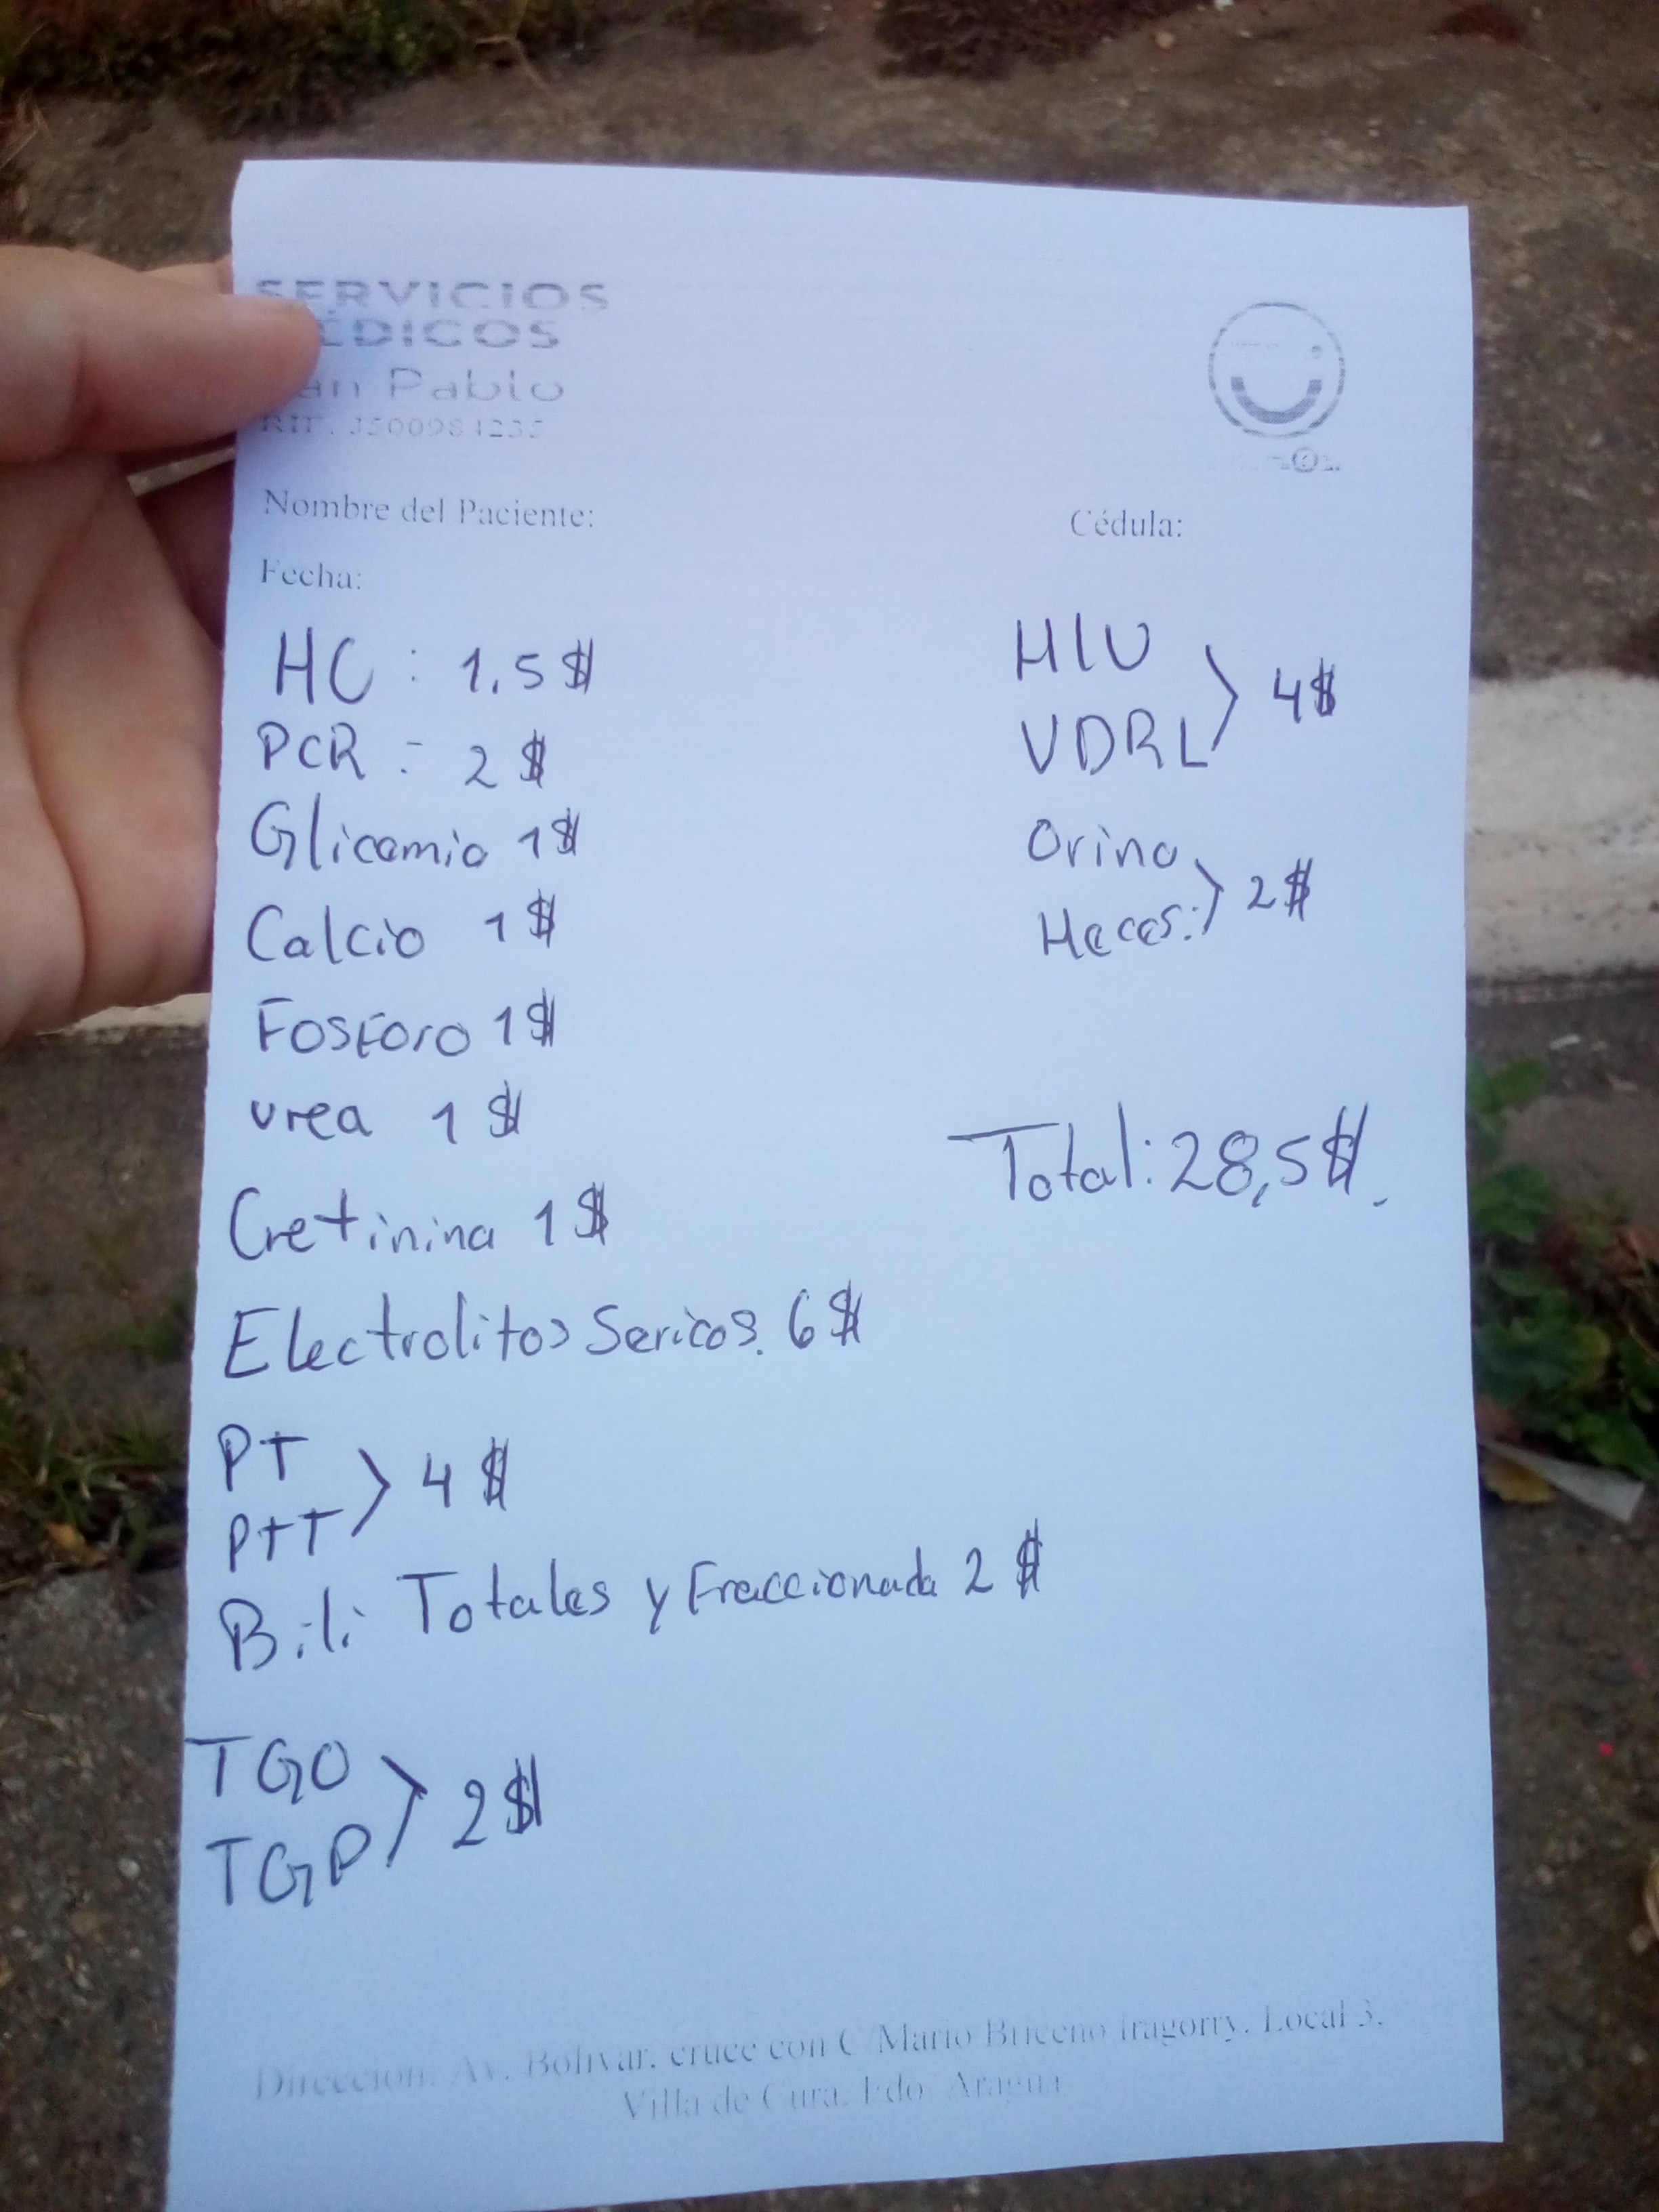 SERVICIOS
ÉDICOS
an Pablo
RIF. J500984235
Nombre del Paciente:
Cédula:
Fecha:
HC : 1.5 $
PCR : 2 $
Glicemia 1 $
Calcio 1 $
Fosforo 1 $
urea 1 $
Cretinina 1 $
Electrolitos Sericos. 6 $
PT
PTT > 4 $
Bili Totales y Fraccionada 2 $
TGO
TGP > 2 $
HIV
VDRL > 4 $
Orina
Heces: > 2 $
Total: 28,5 $.
Dirección. Av. Bolívar, cruce con C Mario Briceño Iragorry, Local 3,
Villa de Cura, Edo Aragua